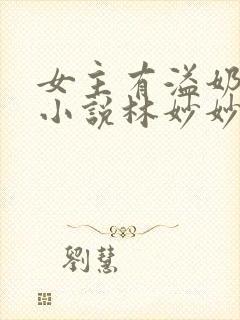 女主有溢奶
小說林妙妙
劉慧